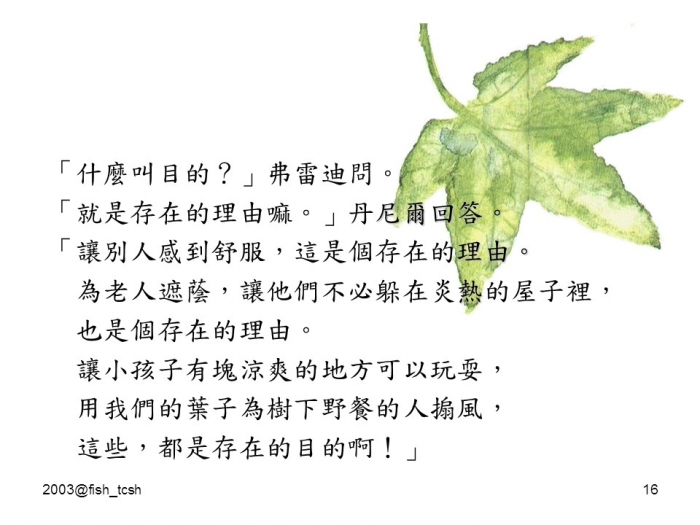 「什麼叫目的？」弗雷迪問。
「就是存在的理由嘛。」丹尼爾回答。
「讓別人感到舒服，這是個存在的理由。
為老人遮蔭，讓他們不必躲在炎熱的屋子裡，
也是個存在的理由。
讓小孩子有塊涼爽的地方可以玩耍，
用我們的葉子為樹下野餐的人搧風，
這些，都是存在的目的啊！」
2003@fish_tcsh
16